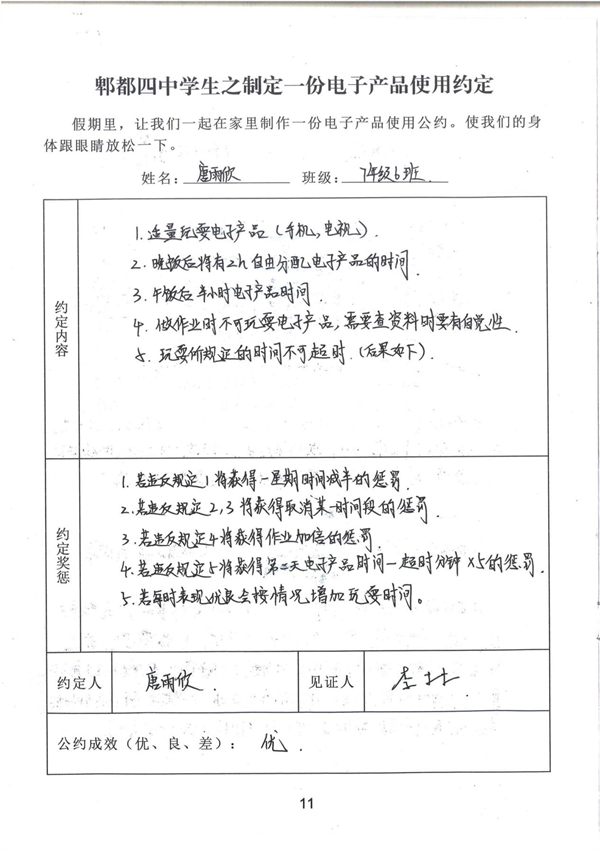 郫都四中学生之制定一份电子产品使用约定
假期里，让我们一起在家里制作一份电子产品使用公约。使我们的身
体跟眼睛放松一下。
姓名：唐雨欣 班级：7年级6班.
约定内容
1.适量玩耍电子产品（手机,电视）.
2.晚饭后将有2h自由分配电子产品的时间.
3.午饭后半小时电子产品时间.
4.做作业时不可玩耍电子产品,需要查资料时要有自觉性.
5.玩耍所规定的时间不可超时.（后果如下）.
约定奖惩
1.若违反规定1将获得一星期时间减半的惩罚.
2.若违反规定2,3将获得取消某一时间段的惩罚.
3.若违反规定4将获得作业加倍的惩罚.
4.若违反规定5将获得第二天电子产品时间一超时分钟×5的惩罚.
5.若每时表现优良会按情况增加玩耍时间。
约定人 唐雨欣. 见证人 李
公约成效（优、良、差）： 优.
11